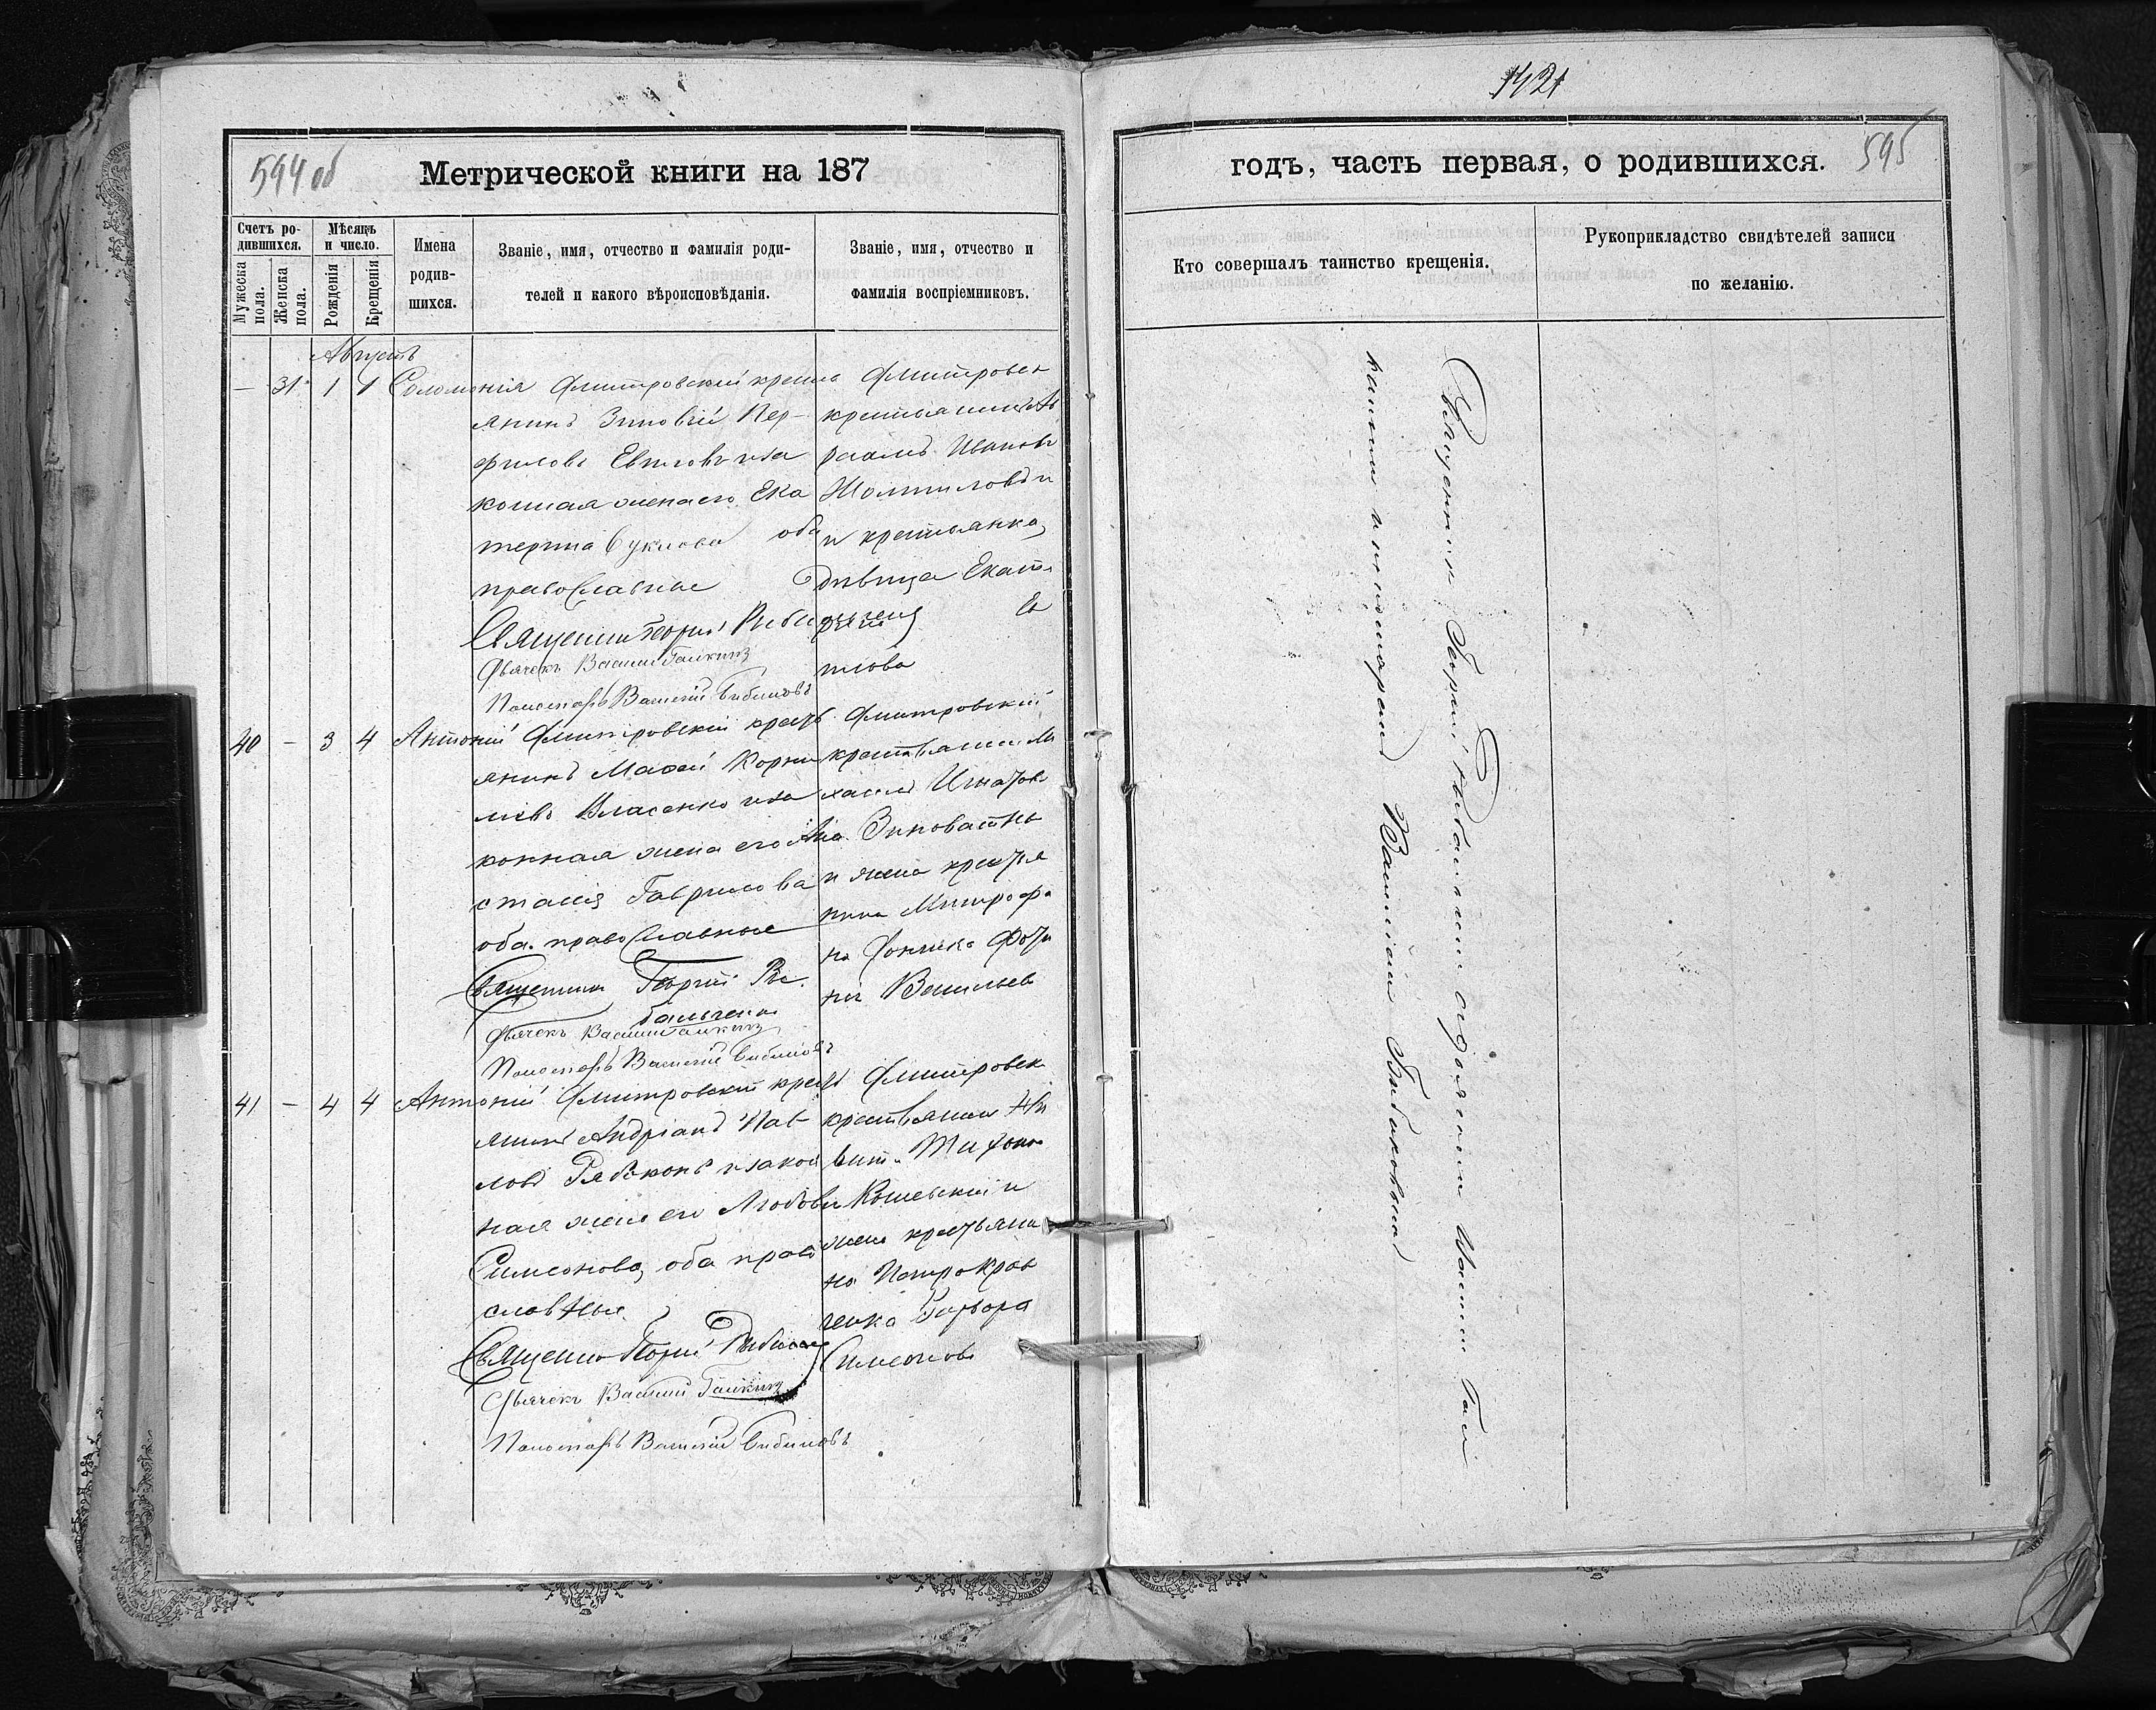 594 об
Метрической книги на 187
Счетъ ро-
дившихся.
Мужеска
пола.
Женска
пола.
Мѣсяцъ
и число.
Рожденія
Крещенія
Имена
родив-
шихся.
Званіе, имя, отчество и фамилія роди-
телей и какого вѣроисповѣданія.
Званіе, имя, отчество и
фамилія воспріемниковъ.
Августъ
— 31 1 1 Соломонія Дмитровскій кресть
янинъ Зиновій Пер-
филовъ и за
конная жена его Ека
терина оба
православные
Священникъ Георгій
Дьячекъ Василій Галкинъ
Пономарь Василій Бибиковъ
Дмитровск
крестьянинъ Ав
раамъ Ивановъ
и
и крестьянка,
дѣвица Екате
40 — 3 4 Антоній Дмитровскій крестъ
янинъ Мафей Корни
ліевъ Власенко и за
конная жена его Ана
стасія Гаврилова
оба православные
Священникъ Георгій Ры
бальченко
Дьячекъ Василій Галкинъ
Пономарь Василій Бибиковъ
Дмитровскій
крестьянинъ Ми
хаилъ Игнатовъ
и жена крестья
нина Митрофа
на Фоти
на Васильева
41 — 4 4 Антоній Дмитровскій крестъ
янинъ Андріанъ Пав
ловъ Рябоконь и закон
ная жена его Любовь
Симеонова, оба право
славные
Священникъ Георгій Рыбальченко
Дьячекъ Василій Галкинъ
Пономарь Василій Бибиковъ
Дмитровск
крестьянинъ Ни
кит. Тихоно
Кошевскій и
жена крестьяни
на Петра Крав
ченка
Симеонов
1421
595
годъ, часть первая, о родившихся.
Кто совершалъ таинство крещенія.
Рукоприкладство свидѣтелей записи
по желанію.
Священникъ Георгій Рыбальченко съ дьячкомъ Василіемъ Гал
кинымъ и пономаремъ Василіемъ Бибиковымъ